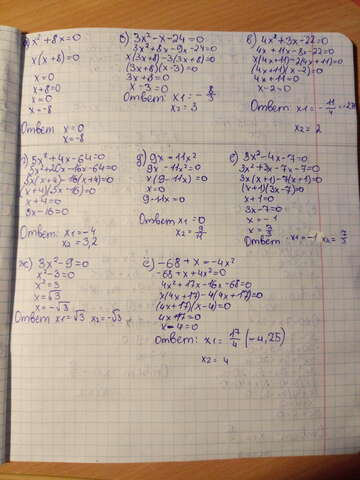 а) x²+8x=0
x(x+8)=0
x=0
x+8=0
x=0
x=-8
Ответ x=0
x=-8
б) 3x²-x-24=0
3x²+8x-9x-24=0
x(3x+8)-3(3x+8)=0
(3x+8)(x-3)=0
3x+8=0
x-3=0
Ответ: x₁=-8/3
x₂=3
в) 4x²+3x-22=0
4x+11x-8x-22=0
x(4x+11)-2(4x+11)=0
(4x+11)(x-2)=0
4x+11=0
x-2=0
Ответ x₁=-11/4
x₂=2
г) 5x²+4x-64=0
5x²+20x-16x-64=0
5x(x+4)-16(x+4)=0
(x+4)(5x-16)=0
x+4=0
5x-16=0
Ответ: x₁=-4
x₂=3,2
д) 9x=11x²
9x-11x²=0
x(9-11x)=0
x=0
9-11x=0
Ответ x₁=0
x₂=9/11
е) 3x²-4x-7=0
3x²+3x-7x-7=0
3x(x+1)-7(x+1)=0
(x+1)(3x-7)=0
x+1=0
3x-7=0
x=-1
x=7/3
Ответ x₁=-1 x₂=7/3
ж) 3x²-9=0
x²-3=0
x²=3
x=√3
x=-√3
Ответ x₁=√3 x₂=-√3
-68+x=-4x²
-68+x+4x²=0
4x²+17x-16x-68=0
x(4x+17)-4(4x+17)=0
(4x+17)(x-4)=0
4x+17=0
x-4=0
Ответ: x₁=17/4 (-4,25)
x₂=4